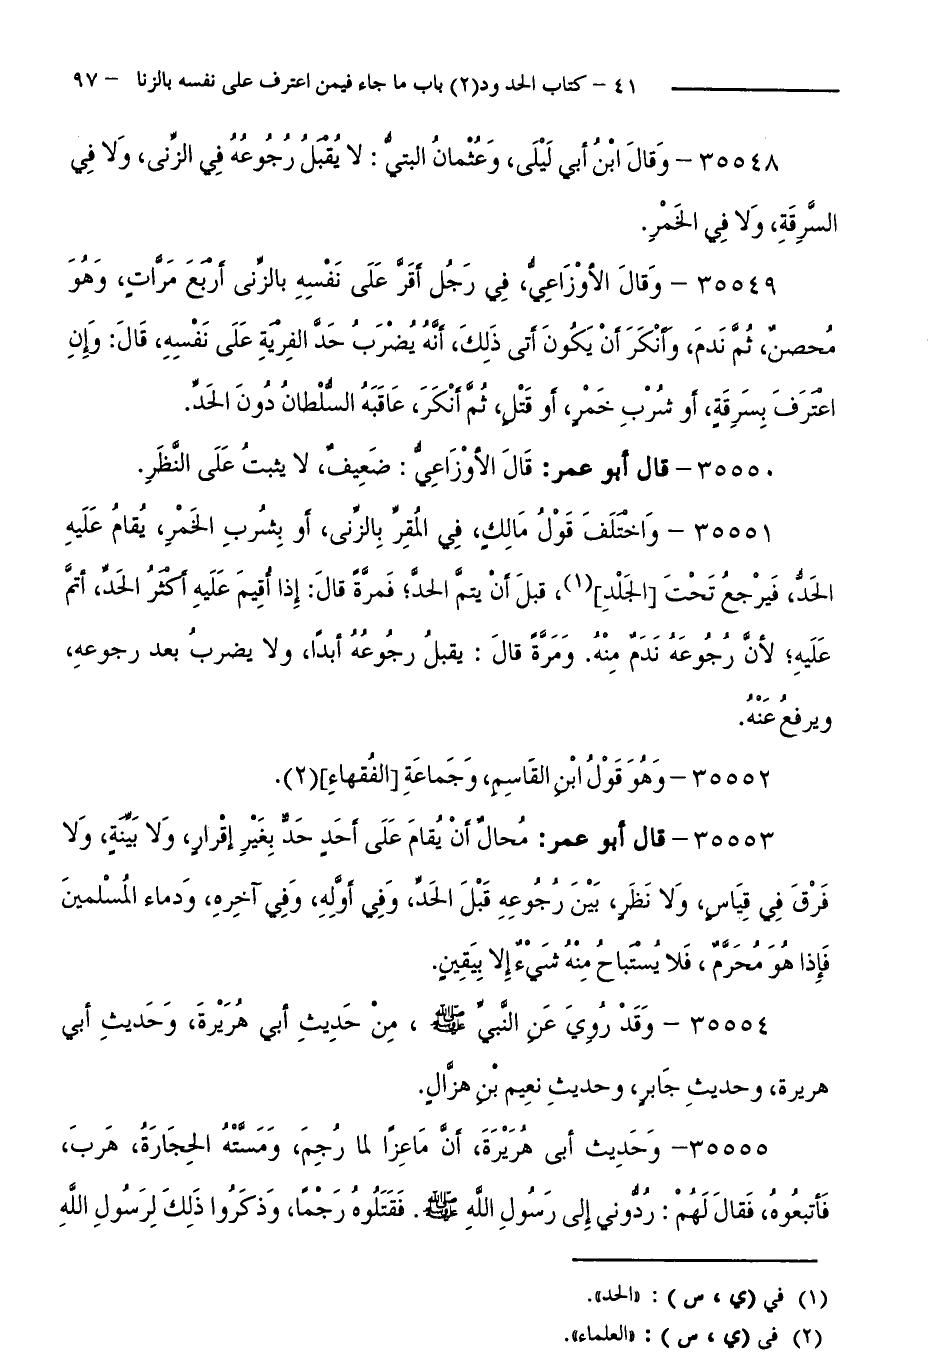 ٤١ – كتاب الحدود(٢) باب ما جاء فيمن اعترف على نفسه بالزنا – ٩٧
٣٥٥٤٨ – وَقالَ ابْنُ أبي لَيْلَى، وَعُثْمانُ البتيُّ : لا يُقْبَلُ رُجُوعُهُ فِي الزِّنى، وَلا فِي
السَّرِقَةِ، وَلَا فِي الخَمْرِ.
٣٥٥٤٩ – وَقَالَ الأوْزَاعِيُّ، فِي رَجُل أقَرَّ عَلَى نَفْسِهِ بالزِّنى أرْبَعَ مَرَّاتٍ، وَهُوَ
مُحصنٌ، ثُمَّ نَدمَ، وَأنْكَرَ أنْ يَكُونَ أتى ذَلِكَ، أنَّهُ يُضْرَبُ حَدَّ الفِرْيَةِ عَلَى نَفْسِهِ، قَالَ: وَإنِ
اعْتَرَفَ بِسَرِقَةٍ، أو شُرْبِ خَمْرٍ، أو قَتْلٍ، ثُمَّ أنْكَرَ، عَاقَبَهُ السُّلْطانُ دُونَ الحَدِّ.
٣٥٥٥٠ – قال أبو عمر: قَالَ الأوْزَاعِيُّ : ضَعِيفٌ، لا يثبتُ عَلَى النَّظَرِ.
٣٥٥٥١ – وَاخْتَلَفَ قَوْلُ مَالِكٍ، فِي المُقِرِّ بِالزِّنى، أو بِشُربِ الخَمْرِ، يُقامُ عَلَيهِ
الحَدُّ، فَيَرْجعُ تَحْتَ [الجَلْدِ](١)، قبلَ أنْ يتمَّ الحدَّ؛ فَمرَّةً قالَ: إذا أُقِيمَ عَلَيهِ أكْثَرُ الحَدِّ، أتمَّ
عَلَيهِ؛ لأنَّ رُجُوعَهُ نَدَمٌ مِنْهُ. وَمَرَّةً قالَ : يقبلُ رجُوعُهُ أبدًا، ولا يضربُ بعد رجوعهِ،
ويرفعُ عَنْهُ.
٣٥٥٥٢ –وَهُوَ قَوْلُ ابْنِ القَاسِمِ، وَجَماعَةِ [الفُقهاءِ](٢).
٣٥٥٥٣ – قال أبو عمر: مُحالٌ أنْ يُقامَ عَلَى أحَدٍ حَدٌّ بِغَيْرِ إقْرارٍ، وَلا بَيِّنَةٍ، وَلا
فَرْقَ فِي قِيَاسٍ، وَلا نَظَرٍ، بَيْنَ رُجُوعِهِ قَبْلَ الحَدِّ، وَفِي أوَّلِهِ، وَفِي آخِرِهِ، وَدماء المُسْلمينَ
فَإذا هُوَ مُحَرَّمٌ ، فَلا يُسْتَباحُ مِنْهُ شَيْءٌ إلا بِيَقِينٍ.
٣٥٥٥٤ – وَقَدْ رُوِيَ عَنِ النَّبيِّ ﷺ ، مِنْ حَدِيثِ أبي هُرَيْرةَ، وَحَديثِ أبي
هريرة، وحديثِ جَابرٍ، وحديثِ نعيم بْنِ هزَّالٍ.
٣٥٥٥٥– وَحَدِيث أبى هُرَيْرَةَ، أنَّ مَاعِزًا لما رُجِمَ، وَمَسَّتْهُ الحِجَارَةُ، هَربَ،
فَأتبعُوهُ، فَقالَ لَهُمْ : رُدُّوني إلى رَسُولِ اللَّهِ ﷺ. فَقَتَلُوهُ رَجْمًا، وَذكَرُوا ذَلِكَ لِرَسُولِ اللَّهِ
(١) في (ي ، س ) : «الحد».
(٢) فى (ي ، س ) : «العلماء».